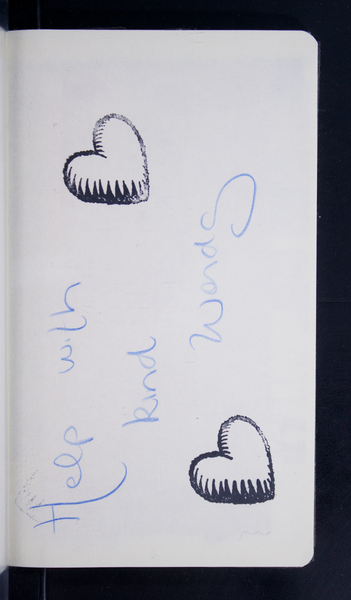 Help with
kind
Words